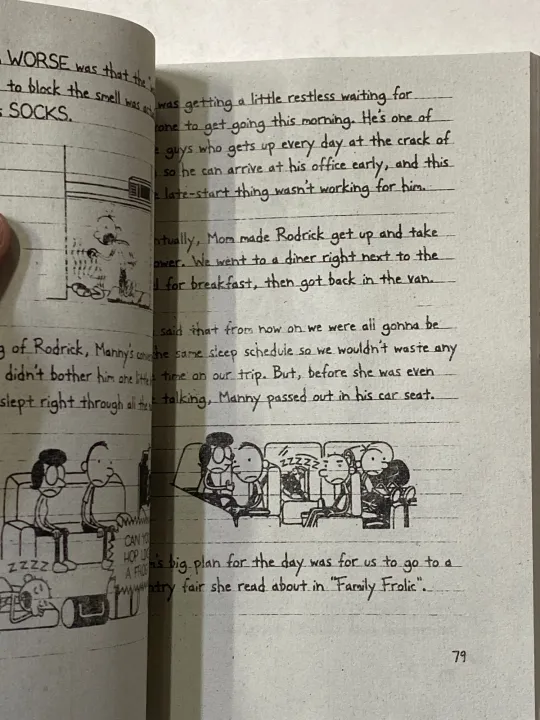 WORSE was that the
to block the smell was
SOCKS.
of Rodrick, Manny's
didn't bother him one
slept right through all the
CAN YO
HOP LI
A FRO
ZZZZ
was getting a little restless waiting for
to get going this morning. He's one of
guys who gets up every day at the crack of
so he can arrive at his office early, and this
late-start thing wasn't working for him.
Mom made Rodrick get up and take
We went to a diner right next to the
for breakfast, then got back in the van.
said that from now on we were all gonna be
the same sleep schedule so we wouldn't waste any
time on our trip. But, before she was even
talking, Manny passed out in his car seat.
ZZZZZ
big plan for the day was for us to go to a
fair she read about in "Family Frolic".
79